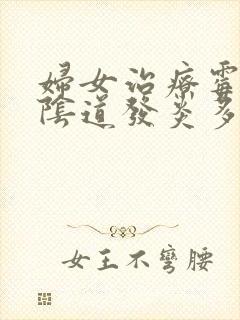 婦女治療霉
陰道發炎多
女王不彎腰